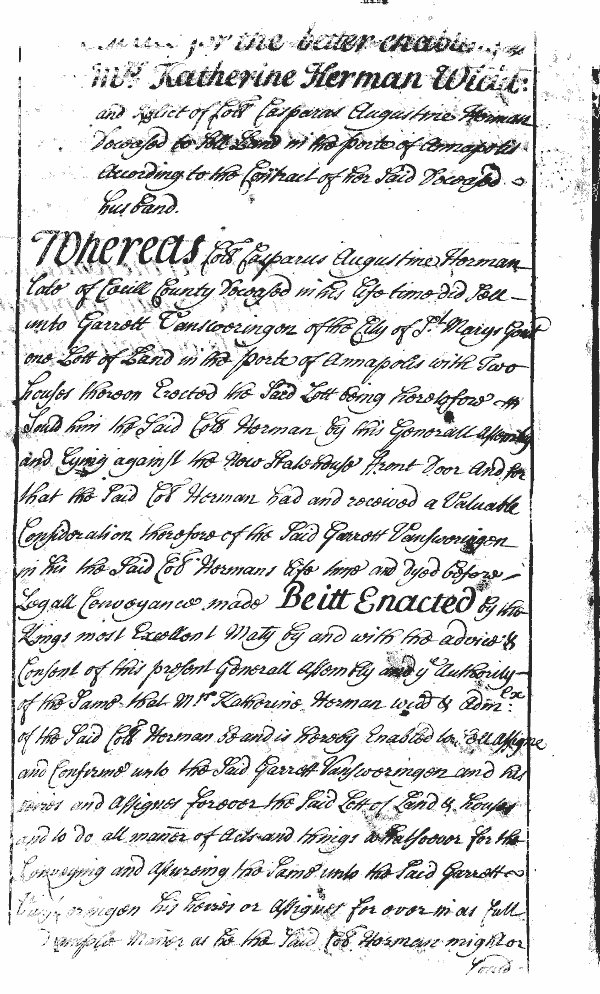 for the better enabling
Mrs Katherine Herman Widd:
and Relict of Coll Casparus Augustine Herman
Deceased to sell Land in the porte of Annapolis
According to the Contract of her Said Deceased
husband.
Whereas Coll Casparus Augustine Herman
late of Cecill County Deceased in his life time did Sell
unto Garrett Vansweringen of the City of St. Marys Gent
one Lott of Land in the porte of Annapolis with Two
houses thereon Erected the Said Lott being heretofore
him the Said Coll Herman by this Generall Assembly
and Lying against the New Statehouse Front Door And for
that the Said Coll Herman had and received a Valuable
Consideration therefore of the Said Garrett Vansweringen
in his the Said Coll Hermans life time and dyed before
Legall Conveyance made Be itt Enacted by the
Kings most Excellent Maty by and with the advice &
Consent of this present Generall Assembly and ye Authority
of the Same that Mrs Katherine Herman widd & Admx:
of the Said Coll Herman be and is hereby Enabled to Assigne
and Confirme unto the Said Garrett Vansweringen and his
heires and Assignes forever the Said Lott of Land & houses
and to do all maner of Acts and things whatsoever for the
Conveying and assureing the Same unto the Said Garrett
Vansweringen his heires or Assignes for ever in as full
ample Maner as he the Said Coll Herman might or
Could